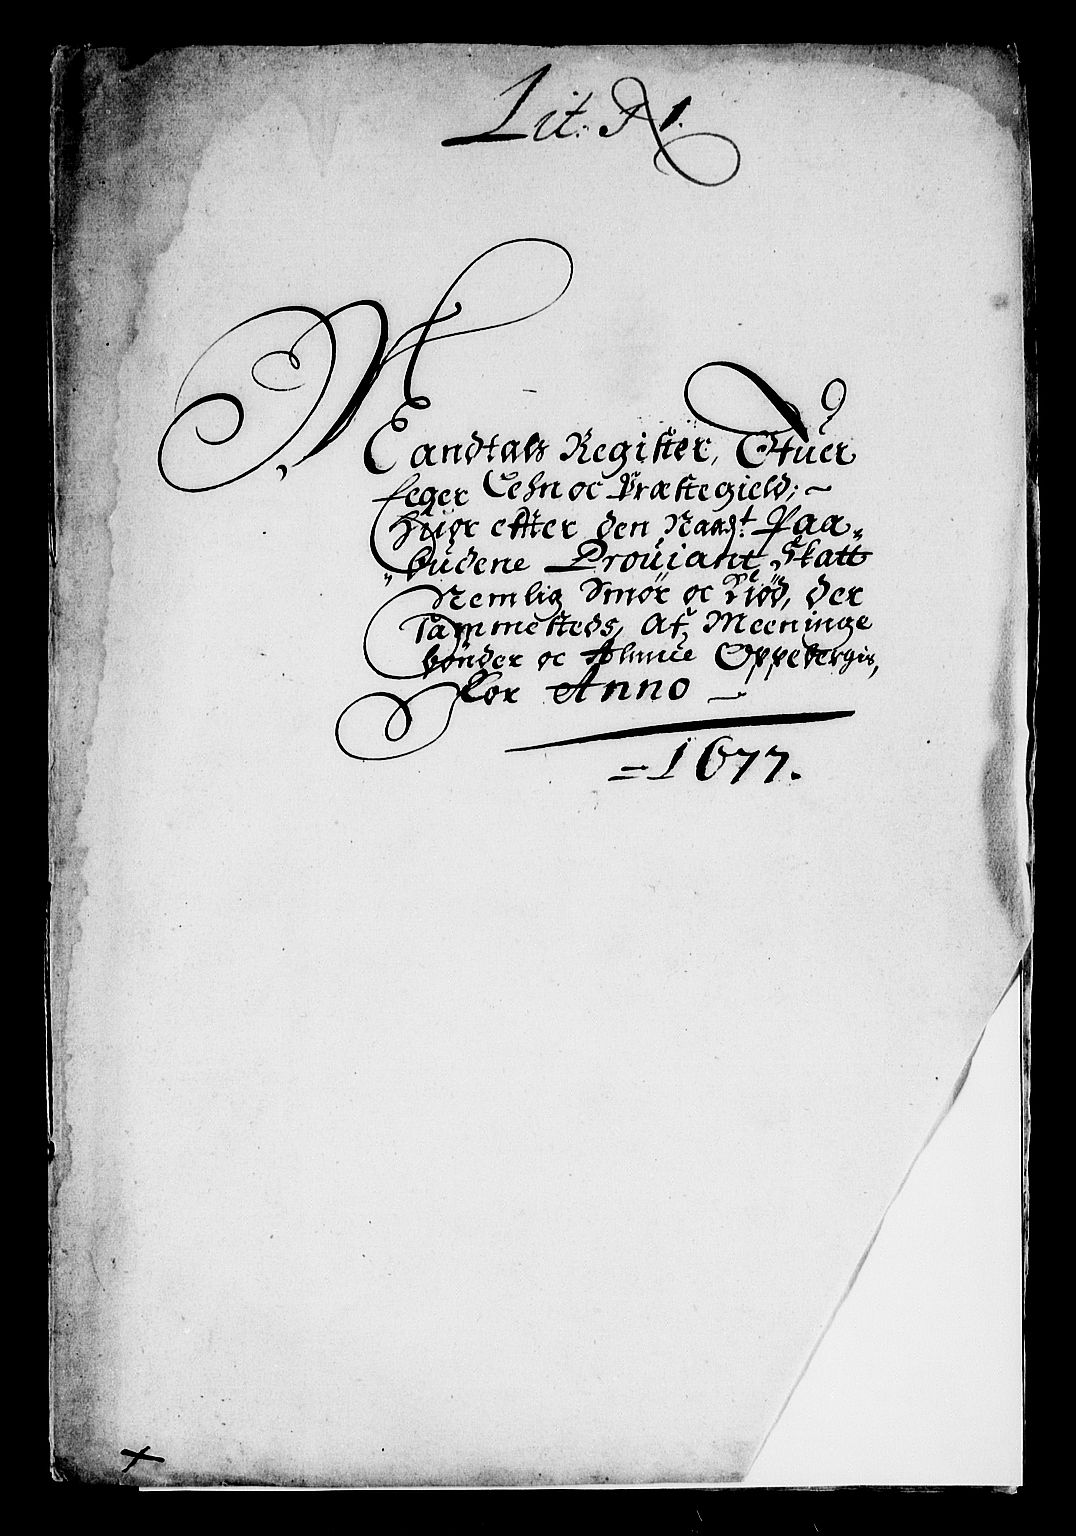 Lit: A 1.
Mandtals Register, Ofuer
Leger Lehn oc Præstegield;
Huor effter den Naadst Paa„
„budene Prouiant Skatt
Nemlig Smør oc Kiød, der
Sammesteds, Af Meeninge
bønder oc Almue Oppebergis,
For Anno
1677.